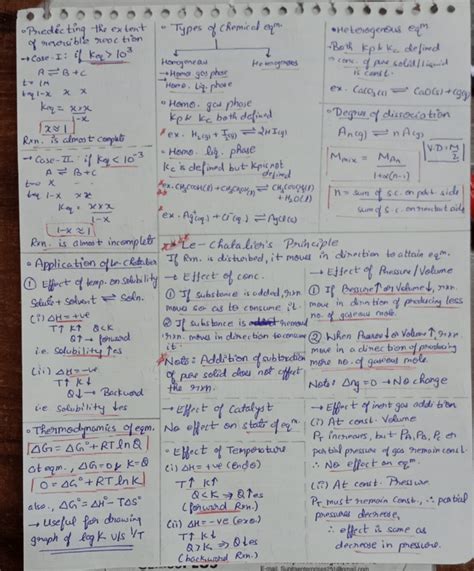 • Predicting the extent
of reversible reaction
→ Case-I: if Keq > 10³
A ⇌ B + C
t=0 1 M
teq 1-x x x
Keq = x×x / 1-x
x ≈ 1
Rxn. is almost complete
→ Case-II: if Keq < 10⁻³
A ⇌ B + C
t=0 x - -
teq 1-x x x
Keq = x×x / 1-x
1-x ≈ 1
Rxn. is almost incomplete
• Application of Le-Chatelier
① Effect of temp. on solubility
Solute + Solvent ⇌ Soln.
(i) ΔH = +ve
T↑ K↑ Q<K
Q↑ → forward
i.e. solubility ↑es
(ii) ΔH = -ve
T↑ K↓
Q↓ → Backward
i.e solubility ↓es
• Thermodynamics of eqm.
ΔG = ΔG° + RT lnQ
at eqm., ΔG=0 & K=Q
0 = ΔG° + RT lnK
also, ΔG° = ΔH° - TΔS°
→ Useful for drawing
graph of log K v/s 1/T
• Types of Chemical eqm
Homogeneous
Heterogeneous
→ Homo. gas phase
→ Homo. liq. phase
• Homo. gas phase
Kp & Kc both defined
ex. H₂(g) + I₂(g) ⇌ 2HI(g)
• Homo. liq. phase
Kc is defined but Kp is not
defined
+ H₂O(l)
ex. Ag⁺(aq) + Cl⁻(aq) ⇌ AgCl(s)
• Heterogenous eqm.
-Both Kp & Kc defined
• conc. of pure solid/liquid
is const.
ex. CaCO₃(s) ⇌ CaO(s) + CO₂(g)
• Degree of dissociation
An(g) ⇌ nA(g)
Mmix = MAn / 1+α(n-1)
V.D = M/2
n = sum of s.c. on pdt. side
sum of s.c. on reactant side
Le-Chatalier's Principle
If Rxn. is disturbed, it moves in direction to attain eqm.
→ Effect of conc.
① If substance is added, rxn.
moves so as to consume it.
② If substance is removed
rxn. moves in direction to consume
it.
Note: Addition of subtraction
of pure solid does not affect
the rxn.
→ Effect of Catalyst
No effect on state of eqm
• Effect of Temperature
(i) ΔH = +ve (endo)
T↑ K↑
Q<K → Q↑es
(forward rxn.)
(ii) ΔH = -ve (exo)
T↑ K↓
Q>K → Q↓es
(backward Rxn.)
→ Effect of Pressure / Volume
① If Pressure↑ or Volume↓, rxn.
move in direction of producing less
no. of gaseous mole.
② When Pressure↓ or Volume↑, rxn
move in a direction of producing
more no. of gaseous mole.
Note: Δng = 0 → No change
→ Effect of inert gas addition
(i) At const. Volume
PT increases, but PA, PB, PC or
partial pressure of gas remain const.
∴ No effect on eqm.
(ii) At const. Pressure
PT must remain Const., ∴ partial
pressures decrease,
∴ effect is same as
decrease in pressure.